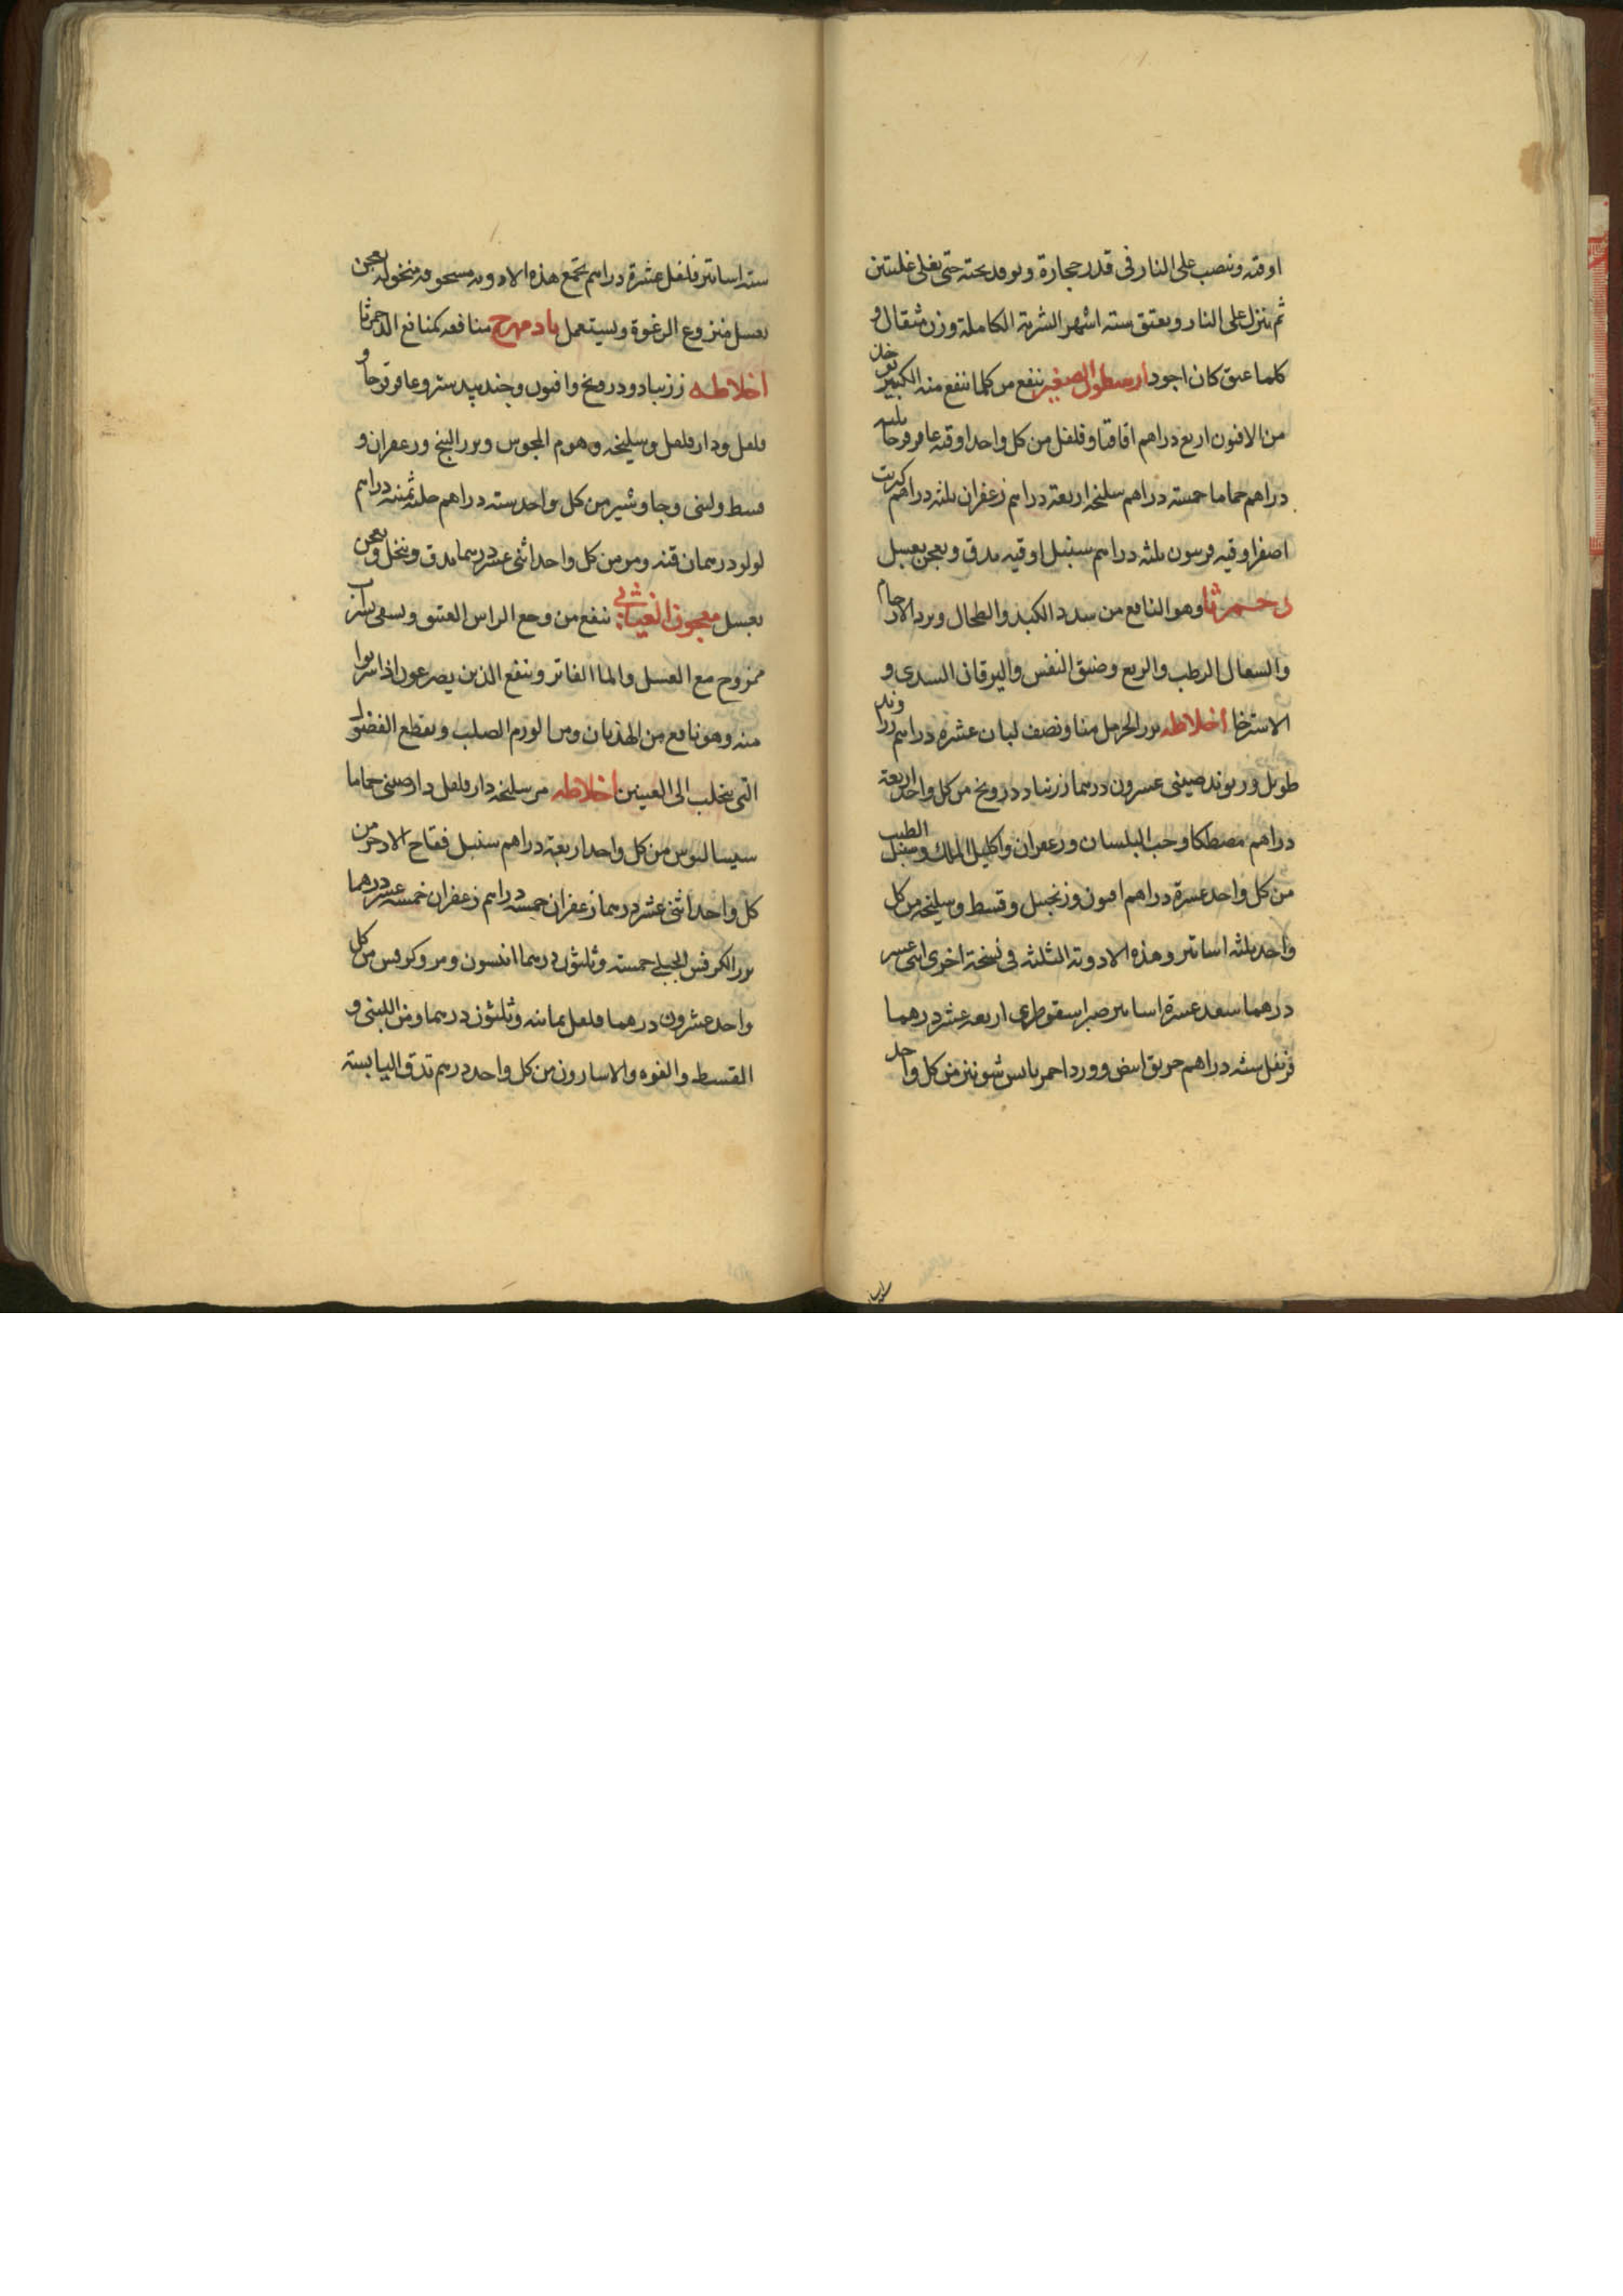 اوقيه وينصب على النار فى قدر حجارة ويوقد تحته حتى يغلى غليتين
ثم ينزل على النار ويعتق ستة اشهر الشربة الكاملة وزن مثقال و
كلما عتق كان اجود ارسطون الصغير ينفع من كلما ينفع منه الكبير يوخذ
من الافيون اربع دراهم اقاقيا وفلفل من كل واحد اوقيه عاقرقرحا ثلثه
دراهم حماما خمسه دراهم سليخه اربعة دراهم زعفران ثلثه دراهم كبريت
اصفر اوقيه فربيون ثلثه دراهم سنبل اوقيه يدق ويعجن بعسل
دحمرثا وهو النافع من سدد الكبد والطحال وبرد الارحام
والسعال الرطب والربع وضيق النفس واليرقان السددى و
الاسترخا اخلاطه بزر الحرمل منا ونصف لبان عشره دراهم زراوند
طويل وريوند صينى عشرون درهما زرنباد درونج من كل واحد اربعة
دراهم مصطكا وحب البلسان وزعفران واكليل الملك وسنبل الطيب
من كل واحد عشرة دراهم افيون وزنجبيل وقسط وسليخه من كل
واحد ثلثه اساتير وهذه الادوية الثلثه فى نسخة اخرى اثنى عشر
درهما سعد عشرة اساتير صبر اسقوطرى اربعه عشر درهما
قرنفل سته دراهم خربق ابيض وورد احمر يابس شونيز من كل واحد
سته اساتير فلفل عشرة دراهم تجمع هذه الادويه مسحوقه منخوله يعجن
بعسل منزوع الرغوة ويستعمل بادمهرج منافعه كمنافع الدحمرثا
اخلاطه زرنباد ودرونج وافيون وجندبيدستر وعاقرقرحا و
فلفل ودارفلفل وسليخه وهوم المجوس وبزر البنج وزعفران و
قسط ولبنى وجاوشير من كل واحد سته دراهم حلبه ثمنيه دراهم
لولو درهمان قنه ومر من كل واحد اثنى عشر درهما يدق وينخل ويعجن
بعسل معجون الغياثى ينفع من وجع الراس العتيق ويسقى بشراب
ممزوج مع العسل والما الفاتر وينفع الذين يصرعون اذا شربوا
منه وهو نافع من الهذيان ومن الورم الصلب ويقطع الفضول
التى يتحلب الى العينين اخلاطه مر سليخه دارفلفل دارصينى حماما
سيساليوس من كل واحد اربعة دراهم سنبل فقاح الاذخر من
كل واحد اثنى عشر درهما زعفران خمسه دراهم زعفران خمسه عشر درهما
بزر الكرفس الجبلى خمسة وثلثون درهما انيسون ومر وكرفس من كل
واحد عشرون درهما فلفل ثمانيه وثلثون درهما ومن اللبنى و
القسط والفوه والاسارون من كل واحد درهم تدق اليابسة